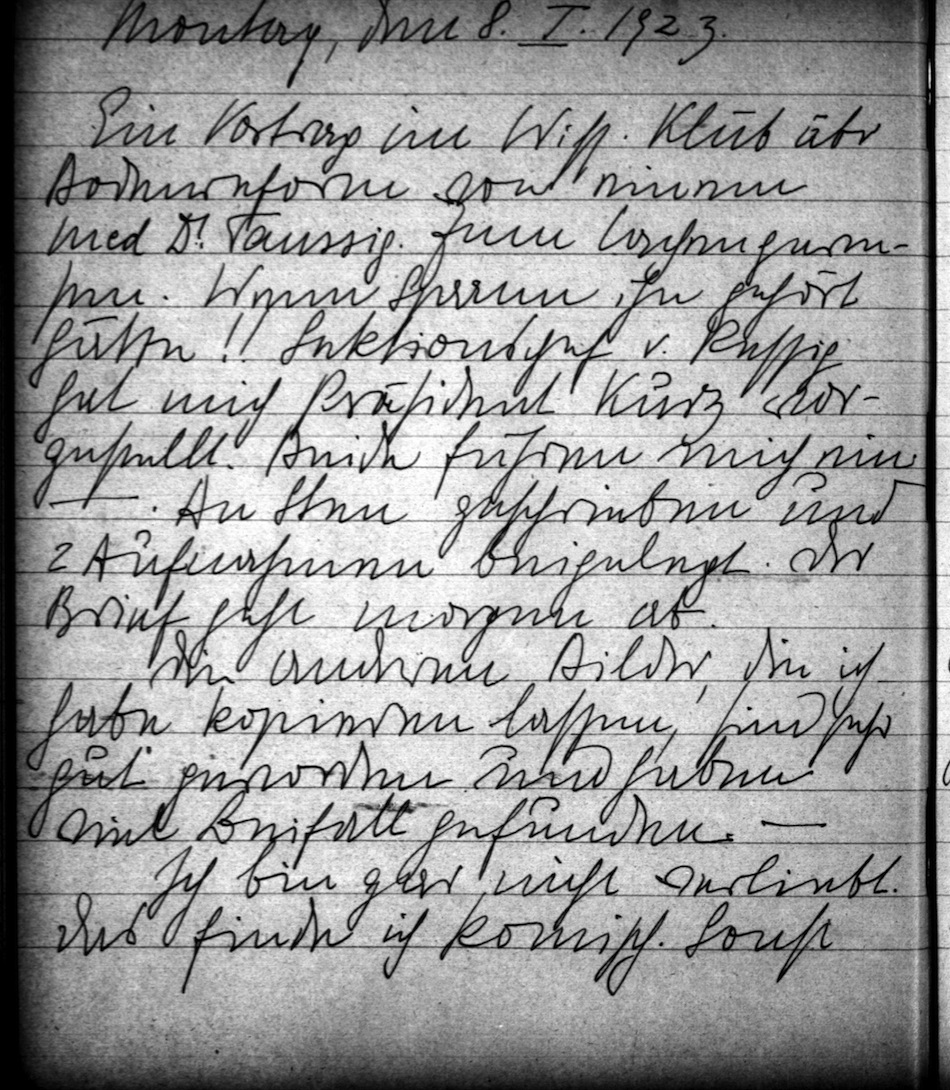 Montag, den 8. I. 1923.
Ein Vortrag im Wiss. Klub über
Bodenreform von einem
med Dr. Taussig. Zum
Wenn Spann ihn gehört
hätte!! Sektionschef v. Rassig
hat mich Präsident Kurz vor-
gestellt. Beide führen mich ein
—. An Sten geschrieben und
2 Aufnahmen beigelegt. Der
Brief geht morgen ab.
Die anderen Bilder, die ich
habe kopieren lassen, sind sehr
gut geworden und haben
viel Beifall gefunden. —
Ich bin gar nicht verliebt.
Das finde ich komisch. Sonst